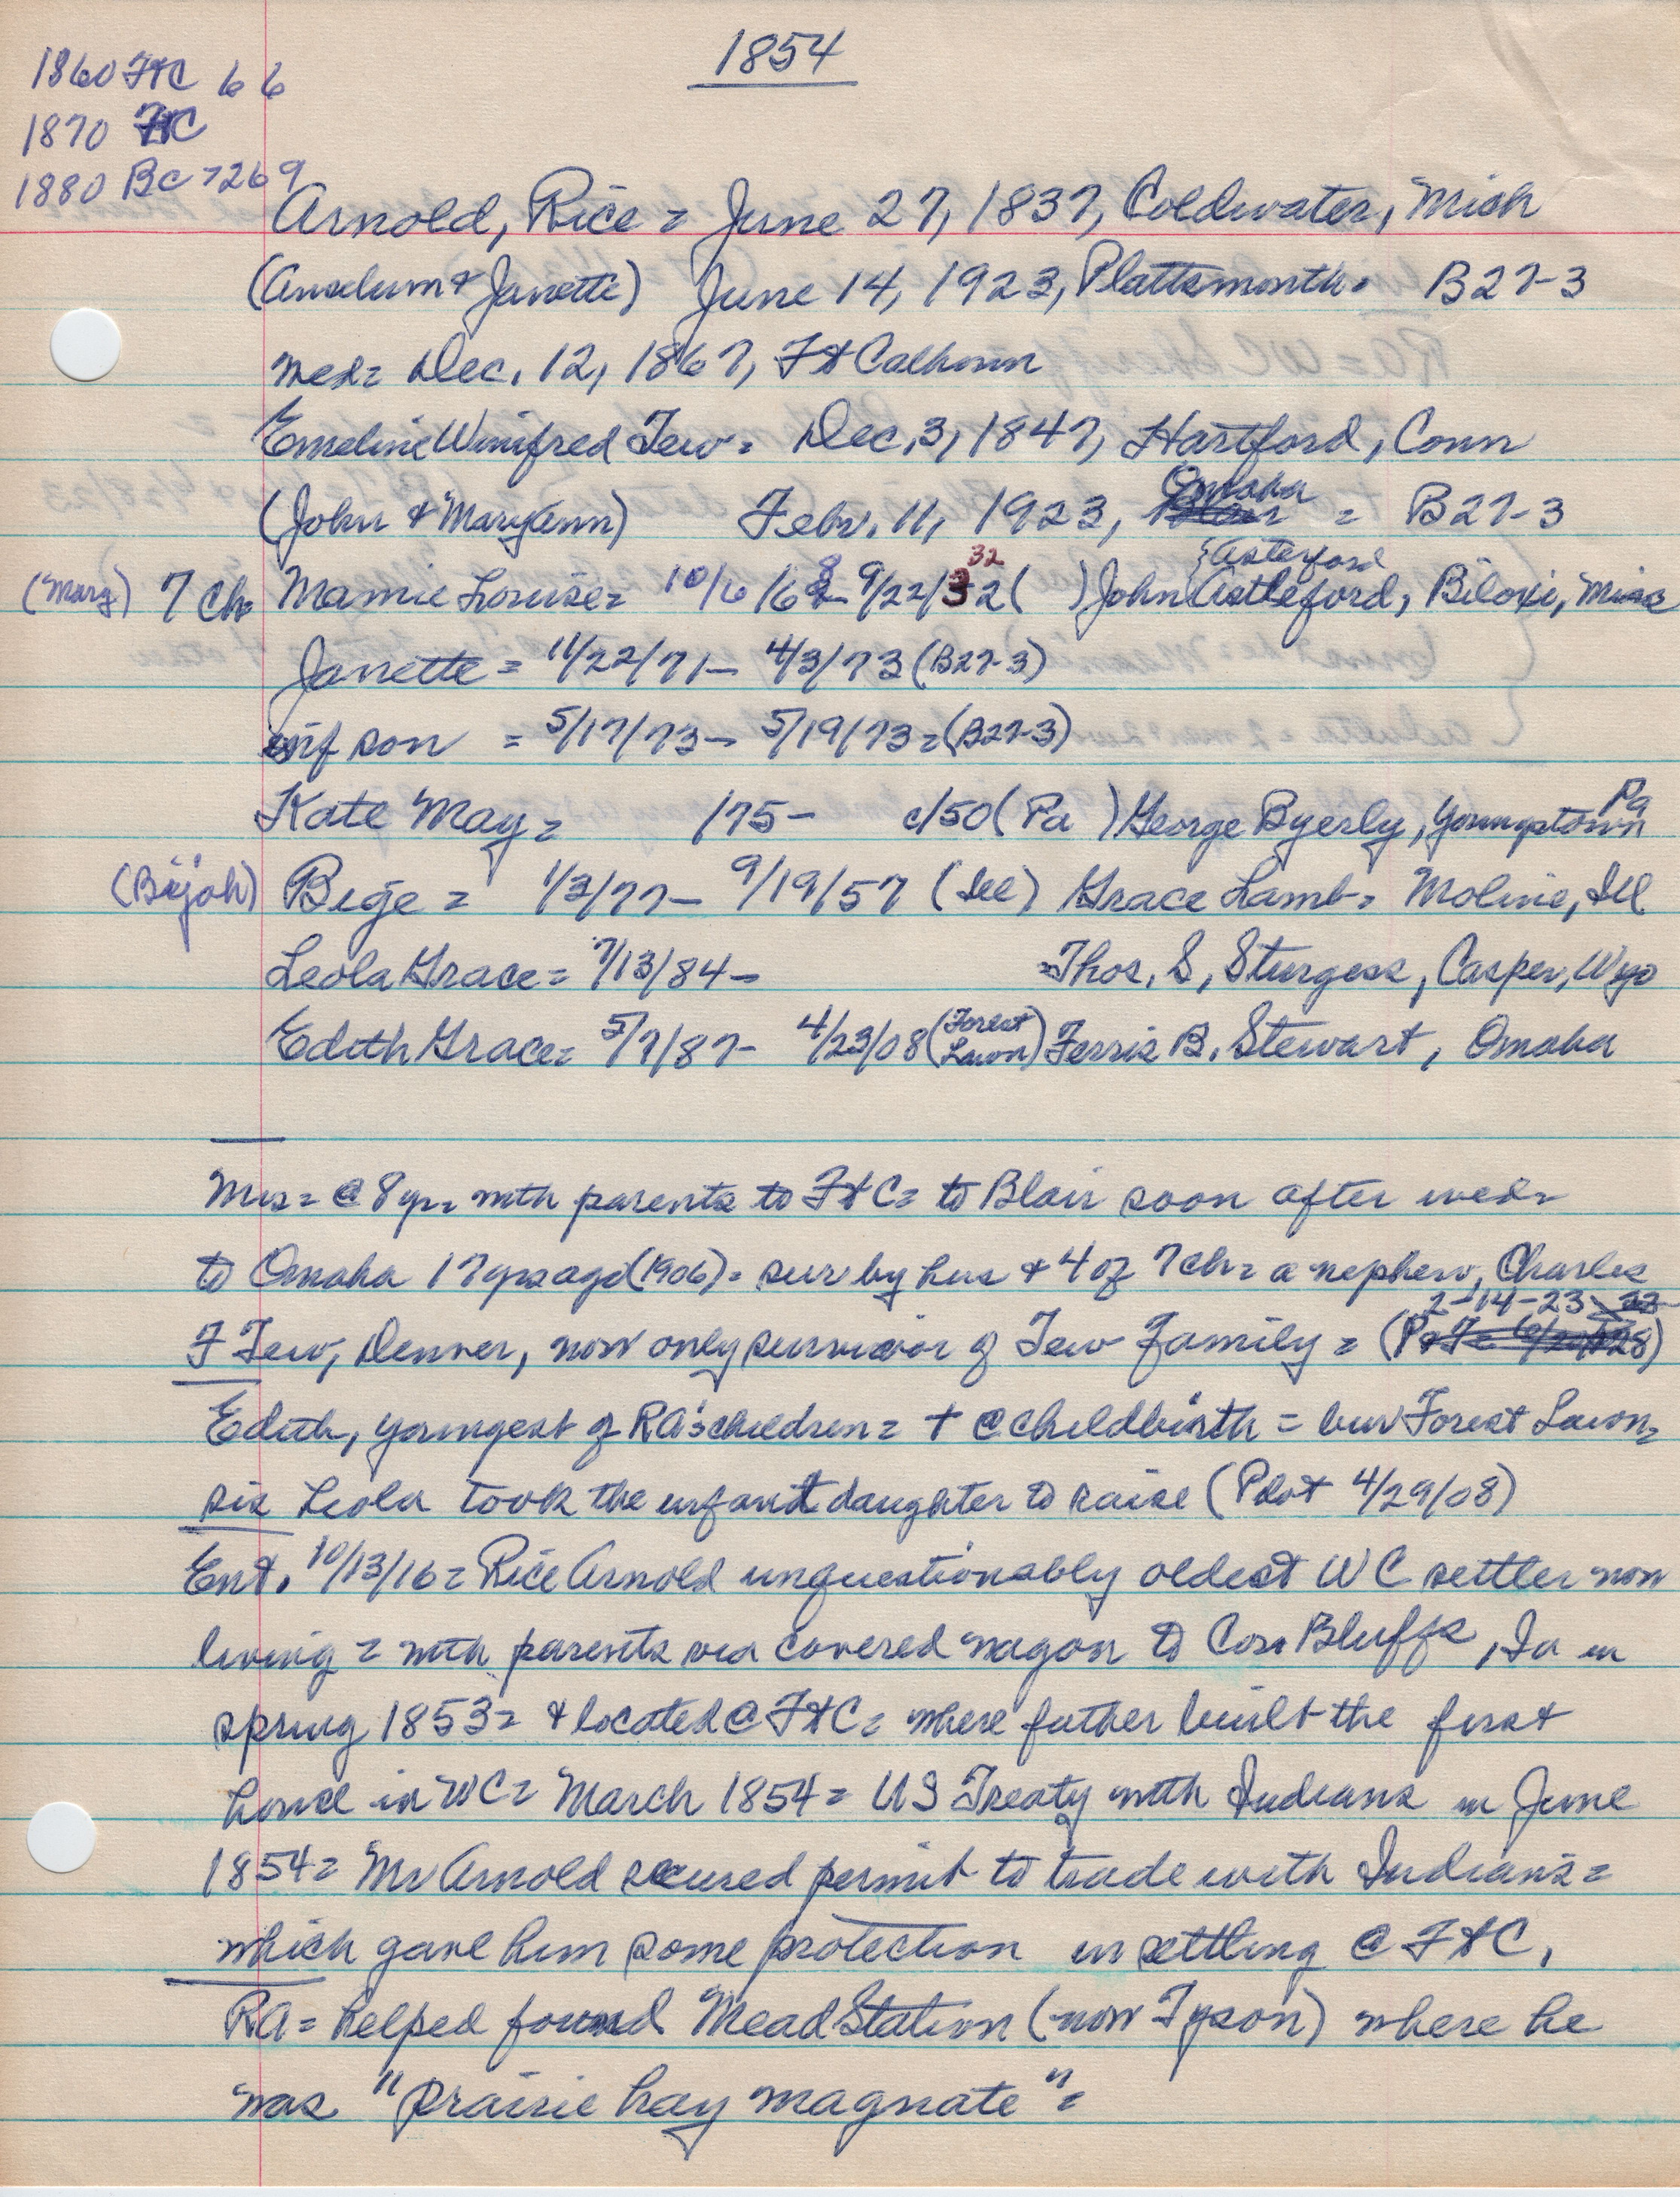 1854
1860 FtC 66
1870 FtC
1880 BC 7269
Arnold, Rice = June 27, 1837, Coldwater, Mich
(Anselum & Janette) June 14, 1923, Plattsmouth = B27-3
wed = Dec. 12, 1867, Ft Calhoun
Emeline Winifred Tew = Dec. 3, 1847, Hartford, Conn
(John & Mary Ann) Febr. 11, 1923, Omaha = B27-3
{Asterford 32
(Mary) 7 ch = Mamie Louise = 10/6/68 - 9/22/32 ( ) John Astleford, Biloxi, Miss
Janette = 11/22/71 - 4/3/73 (B27-3)
inf son = 5/17/73 - 5/19/73 = (B27-3)
Kate May = /75 - c/50 (Pa) George Byerly, Youngstown Pa
(Bijah) Bige = 1/3/77 - 9/19/57 (Ill) Grace Lamb = Moline, Ill
Leola Grace = 7/13/84 - = Thos. S, Sturgess, Casper, Wyo
Edith Grace = 5/7/87 - 4/23/08 (Forest Lawn) Ferris B. Stewart, Omaha
Mrs = @ 8 yr = with parents to FtC = to Blair soon after wed =
to Omaha 17 yrs ago (1906) = sur by hus & 4 of 7 ch = a nephew, Charles
F Tew, Denver, now only survivor of Tew Family = ( 2-14-23
Edith, youngest of RA's children = + @ childbirth = bur Forest Lawn =
sis Leola took the infant daughter to raise (Pilot 4/29/08)
Ent. 10/13/16 = Rice Arnold unquestionably oldest WC settler now
living = with parents via covered wagon to Con Bluffs, Ia in
spring 1853 = & located @ FtC = where father built the first
house in WC = March 1854 = US Treaty with Indians in June
1854 = Mr Arnold secured permit to trade with Indians =
which gave him some protection in settling @ FtC.
RA = helped found Mead Station (now Tyson) where he
was "prairie hay magnate" =